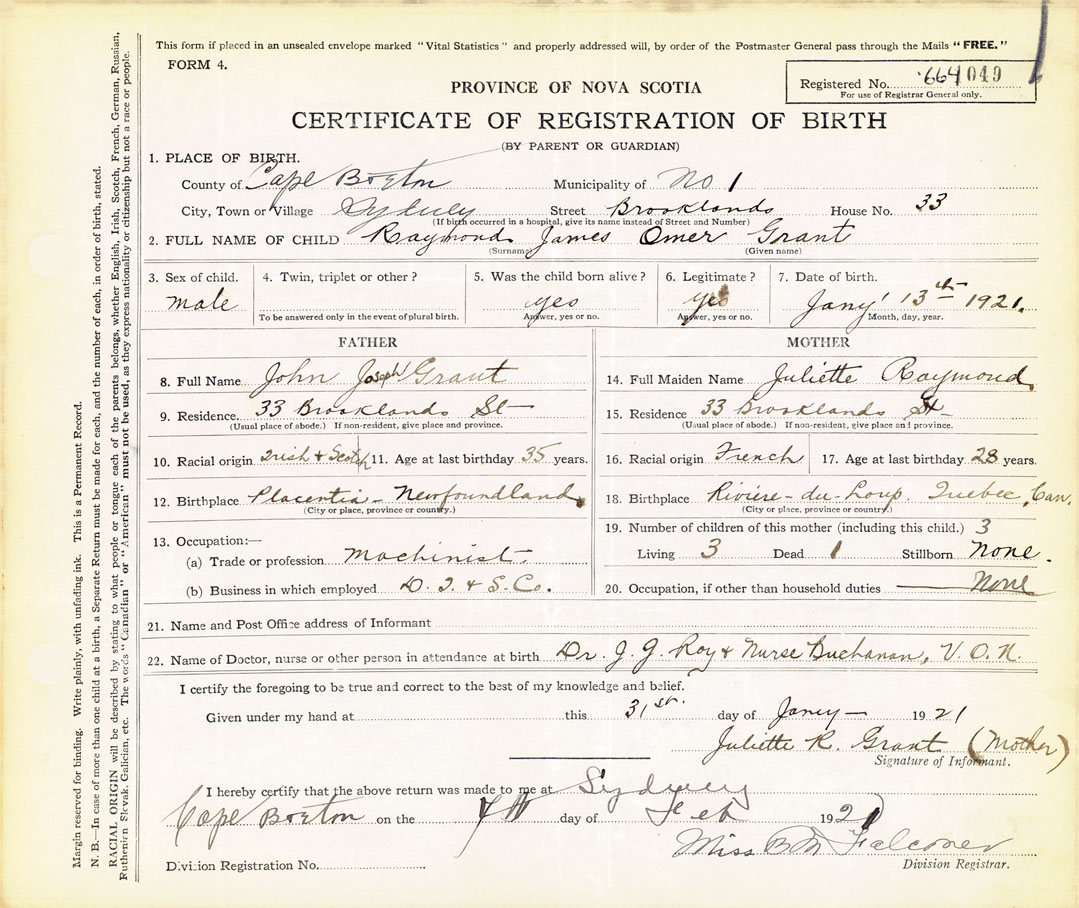 This form if placed in an unsealed envelope marked "Vital Statistics" and properly addressed will, by order of the Postmaster General pass through the Mails "FREE."
FORM 4.
Registered No. 664049
For use of Registrar General only.
PROVINCE OF NOVA SCOTIA
CERTIFICATE OF REGISTRATION OF BIRTH
(BY PARENT OR GUARDIAN)
1. PLACE OF BIRTH.
County of Cape Breton Municipality of No 1
City, Town or Village Sydney Street Brooklands House No. 33
(If birth occurred in a hospital, give its name instead of Street and Number)
2. FULL NAME OF CHILD Raymond James Omer Grant
(Surname) (Given name)
3. Sex of child. 4. Twin, triplet or other? 5. Was the child born alive? 6. Legitimate? 7. Date of birth.
male yes yes Jany 13th 1921.
To be answered only in the event of plural birth. Answer, yes or no. Answer, yes or no. Month, day, year.
FATHER MOTHER
8. Full Name John Joseph Grant
9. Residence. 33 Brooklands St
(Usual place of abode.) If non-resident, give place and province.
10. Racial origin Irish & Scotch 11. Age at last birthday 35 years.
12. Birthplace Placentia - Newfoundland
(City or place, province or country.)
13. Occupation:—
(a) Trade or profession Machinist
(b) Business in which employed D. I. & S. Co.
14. Full Maiden Name Juliette Raymond
15. Residence 33 Brooklands St
(Usual place of abode.) If non-resident, give place and province.
16. Racial origin French 17. Age at last birthday 28 years.
18. Birthplace Rivière-du-Loup. Quebec, Can.
(City or place, province or country.)
19. Number of children of this mother (including this child.) 3
Living 3 Dead 1 Stillborn None.
20. Occupation, if other than household duties None
21. Name and Post Office address of Informant
22. Name of Doctor, nurse or other person in attendance at birth Dr. J. G. Roy & Nurse Buchanan, V. O. N.
I certify the foregoing to be true and correct to the best of my knowledge and belief.
Given under my hand at this 31st. day of Jany 1921
Juliette R. Grant (Mother)
Signature of Informant.
I hereby certify that the above return was made to me at Sydney
Cape Breton on the day of Feb 1921
Miss B M Falconer
Division Registration No. Division Registrar.
Margin reserved for binding. Write plainly, with unfading ink. This is a Permanent Record.
N. B.—In case of more than one child at a birth, a Separate Return must be made for each, and the number of each, in order of birth, stated.
RACIAL ORIGIN will be described by stating to what people or tongue each of the parents belongs, whether English, Irish, Scotch, French, German, Russian,
Ruthenian Slovak, Galician, etc. The words "Canadian" or "American" must not be used, as they express nationality or citizenship but not a race or people.